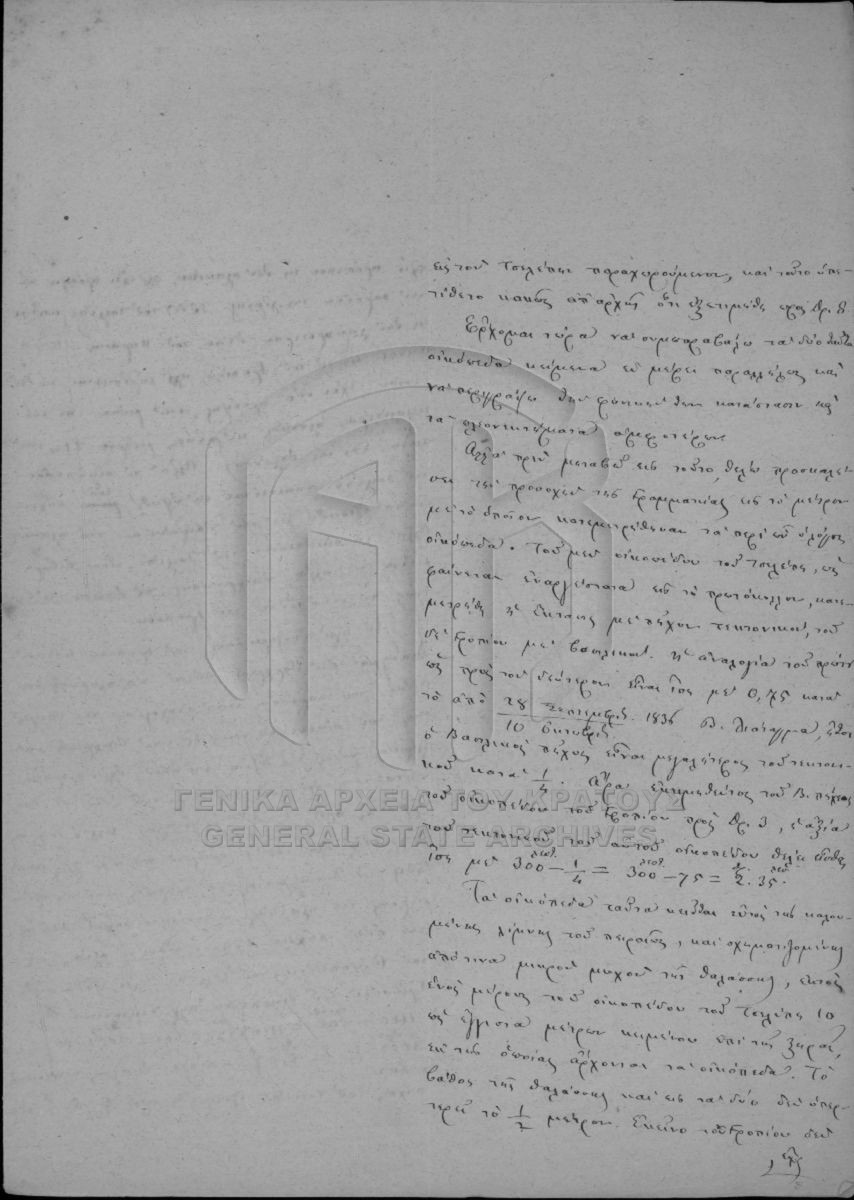 εἰς τὸν Τσελέπην παραχωρούμενον, καὶ τοῦτο ὑπε-
τίθετο κακῶς ἀπ' ἀρχῆς ὅτι ἐξετιμήθη πρὸς δρ. 8
Ἔρχομαι τώρα νὰ συμπαραβάλω τὰ δύο ταῦτα
οἰκόπεδα κείμενα ἐν μέρει παραλλήλως καὶ
νὰ περιγράψω τὴν φυσικήν των κατάστασιν καὶ
τὰ πλεονεκτήματα ἀμφοτέρων
Ἀλλὰ πρὶν μεταβῶ εἰς τοῦτο, θέλω προσκαλέ-
σει τὴν προσοχὴν τῆς Γραμματείας εἰς τὸ μέτρον
μὲ τὸ ὁποῖον κατεμετρήθησαν τὰ περὶ ὧν ὁ λόγος
οἰκόπεδα. Τοῦ μὲν οἰκοπέδου τοῦ Τσελέπη, ὡς
φαίνεται ἐναργέστατα εἰς τὸ πρωτόκολλον, κατε-
μετρήθη ἡ ἔκτασις μὲ πῆχυν τεκτονικόν, τοῦ
δὲ Γροπίου μὲ βασιλικόν. Ἡ ἀναλογία τοῦ πρώτου
ὡς πρὸς τὸν δεύτερον εἶναι ἴση μὲ 0,75 κατὰ
τὸ ἀπὸ 28 Σεπτεμβρίου/10 Ὀκτωβρίου 1836 Β. Διάταγμα, ἤτοι
ὁ Βασιλικὸς πῆχυς εἶναι μεγαλείτερος τοῦ τεκτονι-
κοῦ κατὰ 1/4. Ἄρα ἐκτιμηθέντος τοῦ Β. πήχεως
τοῦ οἰκοπέδου τοῦ Γροπίου πρὸς δρ. 3, ἡ ἀξία
τοῦ τεκτονικοῦ τοῦ αὐτοῦ οἰκοπέδου θέλει εἶσθαι
ἴση μὲ 300 λεπτ. – 1/4 = 300 λεπτ. – 75 = δρ. 2. 35 λεπ.
Τὰ οἰκόπεδα ταῦτα κεῖνται ἐντὸς τῆς καλου-
μένης λίμνης τοῦ Πειραιῶς, καὶ σχηματιζομένης
ἀπό τινα μικρὸν μυχὸν τῆς θαλάσσης, ἐκτὸς
ἑνὸς μέρους τοῦ οἰκοπέδου τοῦ Τσελέπη 10
ὡς ἔγγιστα μέτρων κειμένου ἐπὶ τῆς ξηρᾶς,
ἐκ τῆς ὁποίας ἄρχονται τὰ οἰκόπεδα. Τὸ
βάθος τῆς θαλάσσης καὶ εἰς τὰ δύο δὲν ὑπερ-
τερεῖ τὸ 1/2 μέτρον. Ἐκεῖνο τοῦ Γροπίου δὲν
ΓΕΝΙΚΑ ΑΡΧΕΙΑ ΤΟΥ ΚΡΑΤΟΥΣ
GENERAL STATE ARCHIVES